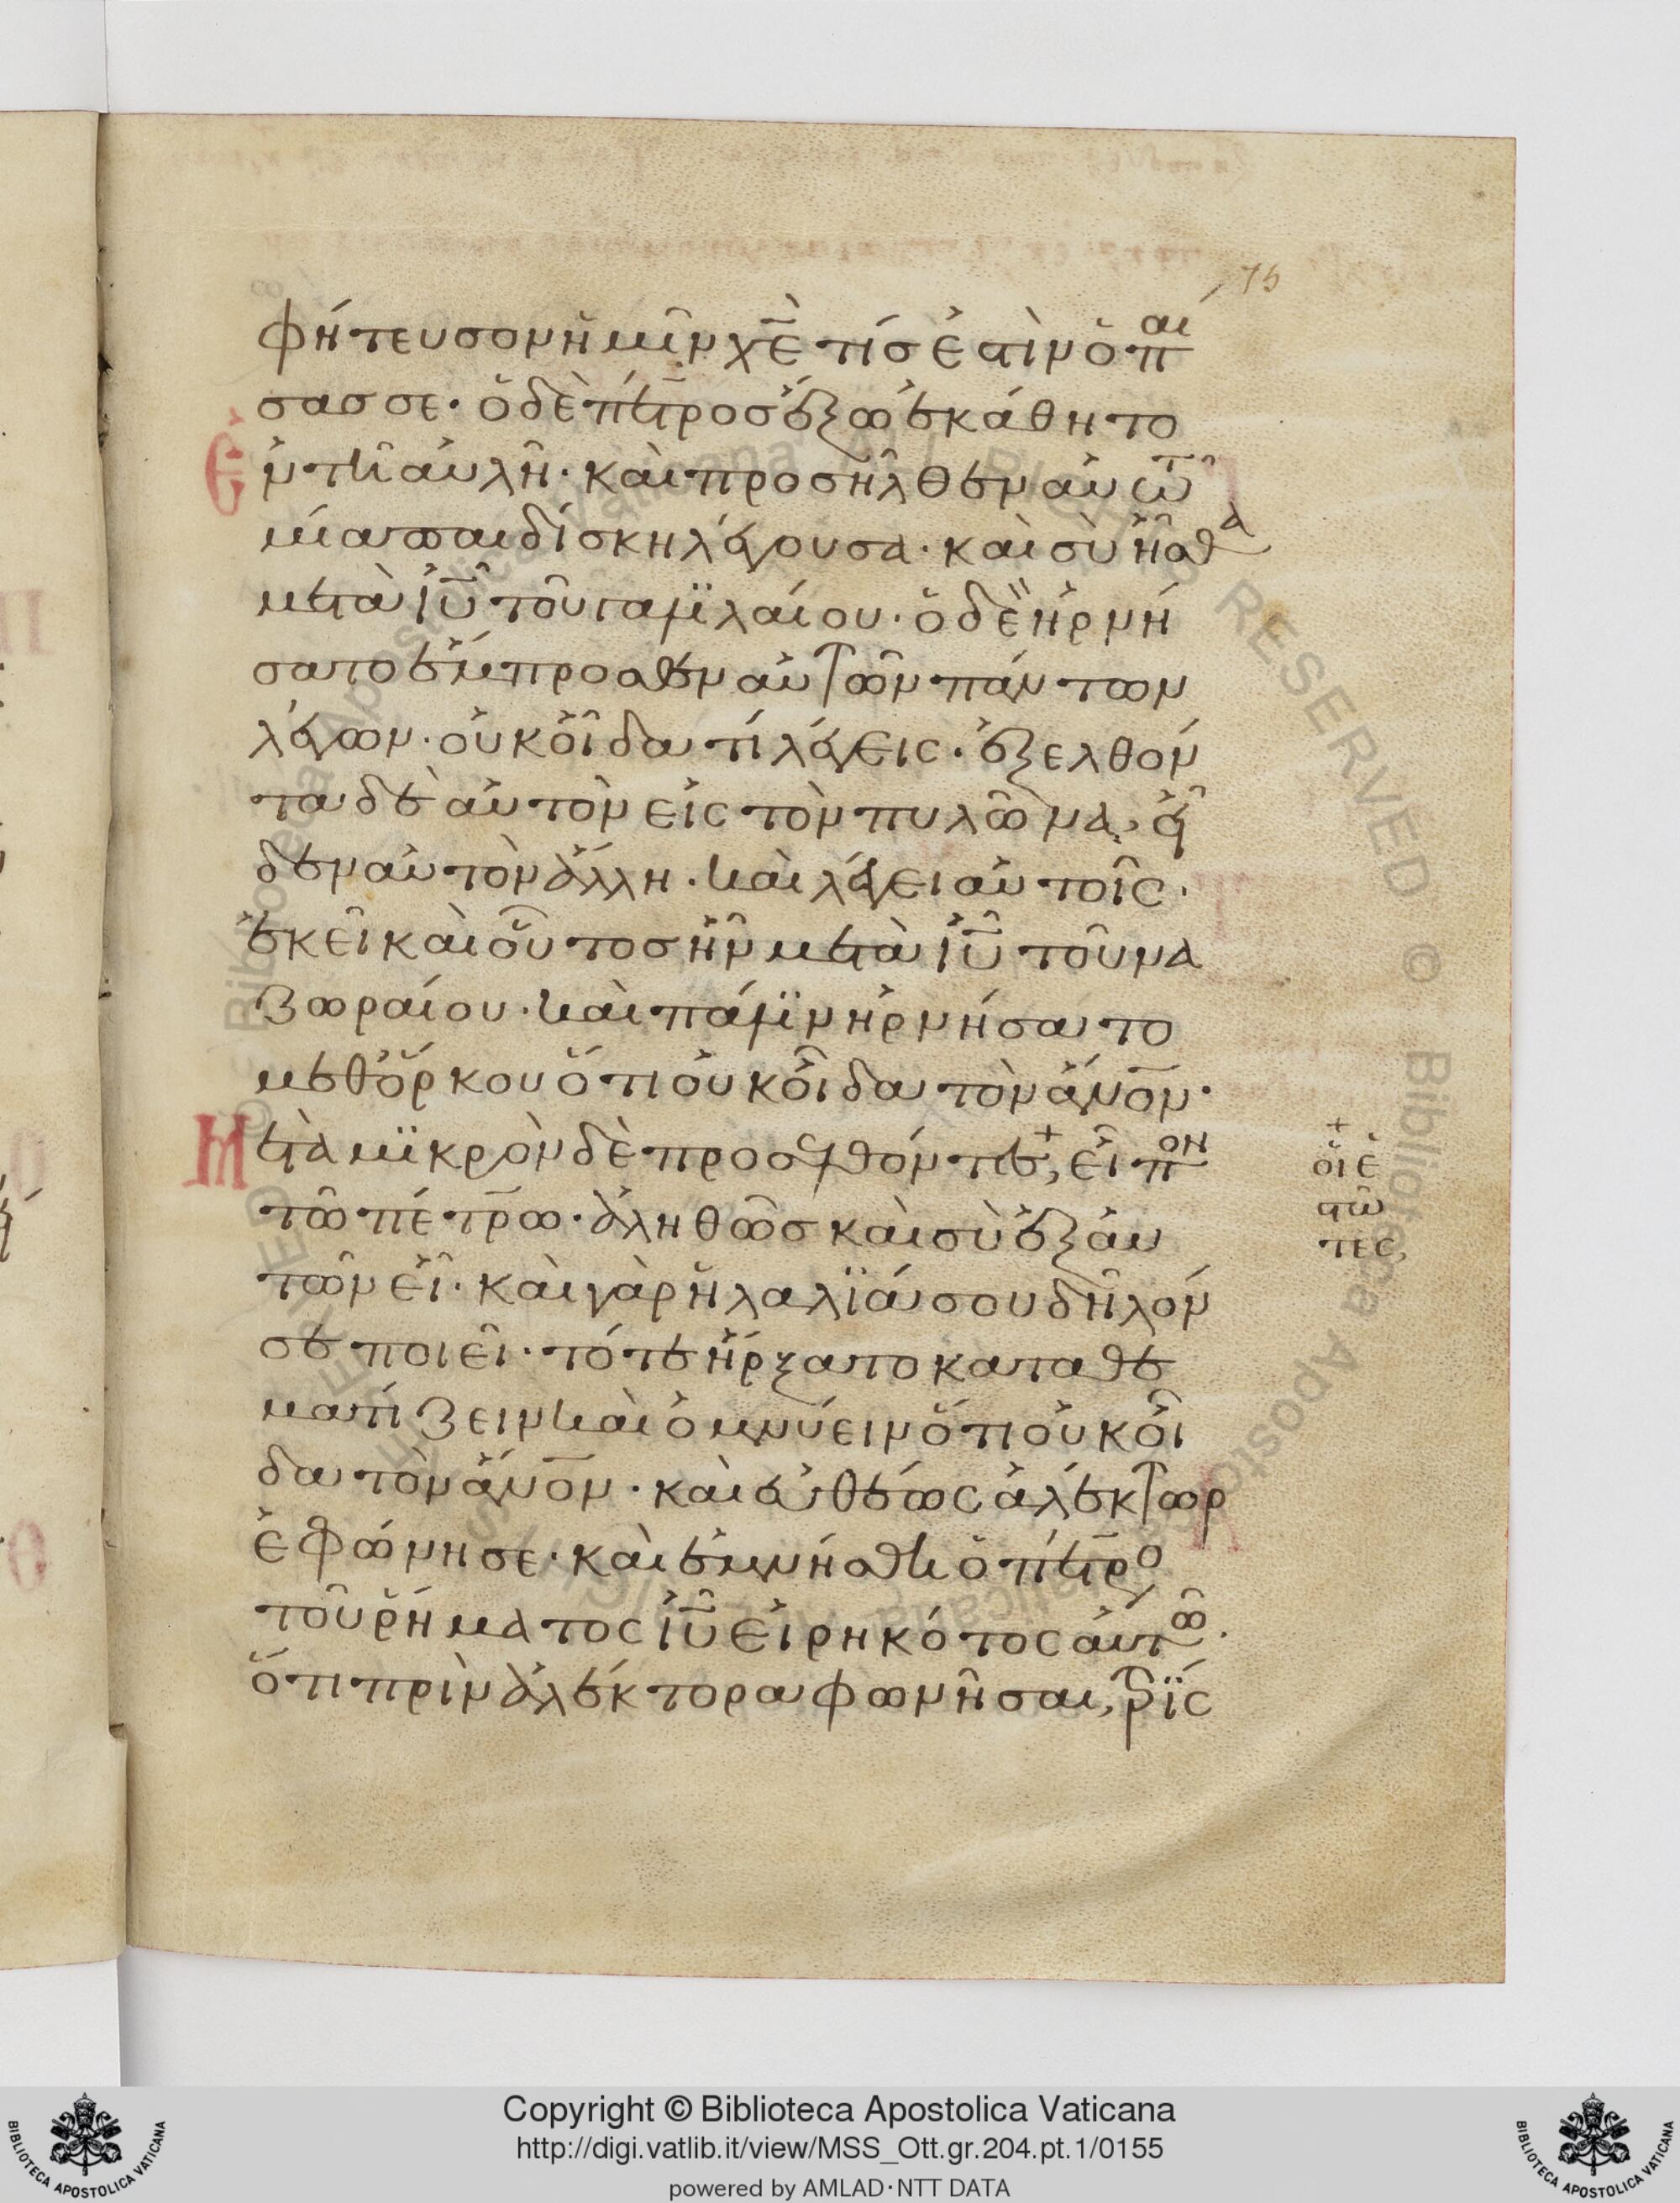 75
φήτευσον ἡμῖν χ̅ε̅ τίς ἐστὶν ὁ παί
σας σε· ὁ δὲ πέτρος ἔξω ἐκάθητο
Ἐν τῆ αὐλῆ· καὶ προσῆλθεν αὐτῶ
μία παιδίσκη λέγουσα· καὶ σὺ ἦσθα
μετὰ ι̅υ̅ τοῦ γαλϊλαίου· ὁ δὲ ἠρνή
σατο ἔμπροσθεν αὐτῶν πάντων
λέγων· οὐκ οἶδα τί λέγεις· ἐξελθόν
τα δὲ αὐτὸν εἰς τὸν πυλῶνα, εἶ
δεν αὐτὸν ἄλλη· καὶ λέγει αὐτοῖς·
ἐκεῖ καὶ οὗτος ἦν μετὰ ι̅υ̅ τοῦ να
ζωραίου· καὶ πάλϊν ἠρνήσατο
μεθ' ὅρκου ὅτι οὐκ οἶδα τὸν ἄν̅ο̅ν̅·
Μετὰ μϊκρὸν δὲ προσελθόντες, + εἶπον
τῶ πέτρω· ἀληθῶς καὶ σὺ ἐξ αὐ
τῶν εἶ· καὶ γὰρ ἡ λαλϊά σου δῆλόν
σε ποιεῖ· τότε ἤρξατο καταθε
ματίζειν καὶ ὀμνύειν ὅτι οὐκ οἶ
δα τὸν ἄν̅ο̅ν̅· καὶ εὐθέως ἀλέκτωρ
ἐφώνησε· καὶ ἐμνήσθη ὁ πέτρος
τοῦ ῥήματος ι̅υ̅ εἰρηκότος αὐτῶ·
ὅτι πρὶν ἀλέκτορα φωνῆσαι, τρϊς
+
οἱ ἑ
στῶ
τες,
Copyright © Biblioteca Apostolica Vaticana
http://digi.vatlib.it/view/MSS_Ott.gr.204.pt.1/0155
powered by AMLAD·NTT DATA
BIBLIOTECA APOSTOLICA VATICANA
BIBLIOTECA APOSTOLICA VATICANA